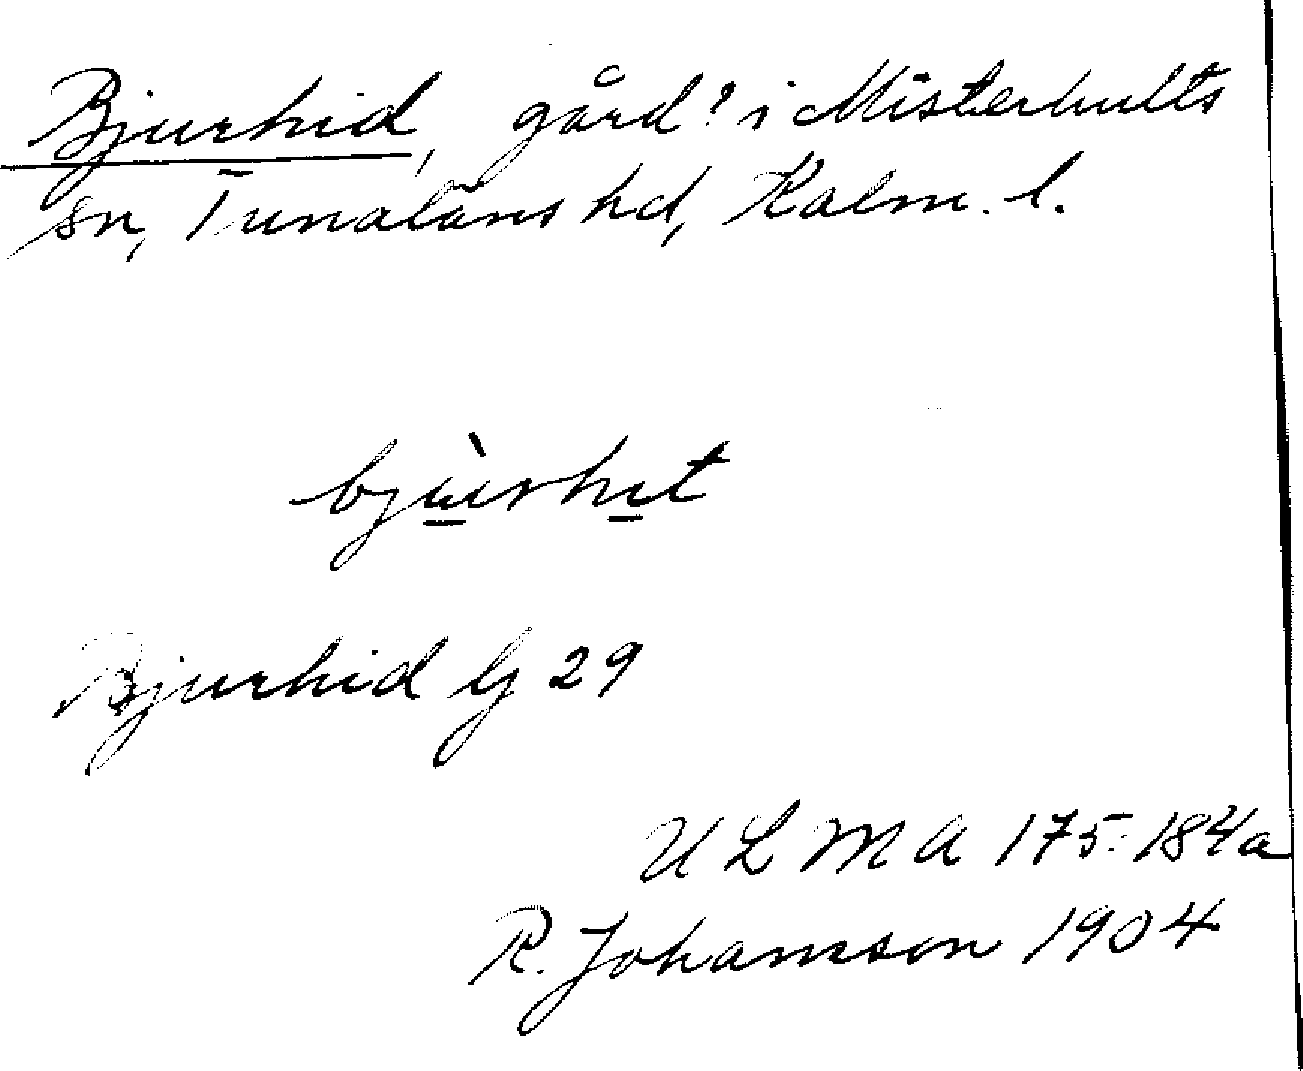 Bjurhid, gård? i Misterhults
sn, Tunaläns hd, Kalm. l.
bjùrhɩt
Bjurhid G 29
ULMA 175:184a
R. Johansson 1904